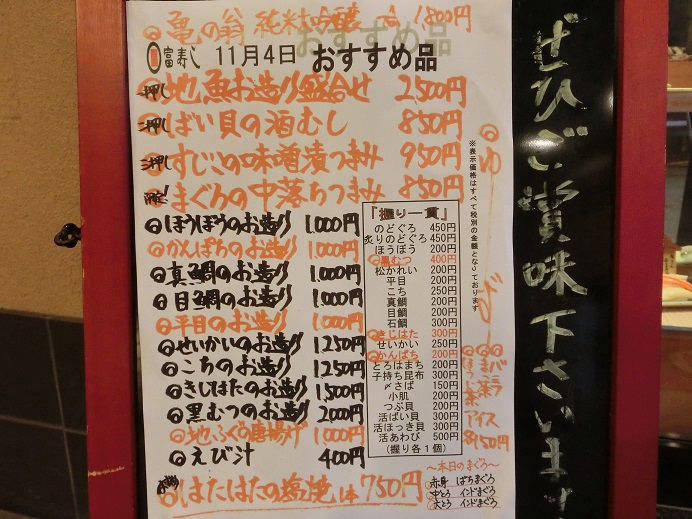 亀の翁 純米大吟醸 一合 1,800円
富寿し 11月4日 おすすめ品
一押し 地魚お造り盛合せ 2,500円
二押し ばい貝の酒むし 850円
三押し すじこの味噌漬つまみ 950円
まぐろの中落ちつまみ 850円
ほうぼうのお造り 1,000円
かんぱちのお造り 1,000円
真鯛のお造り 1,000円
目鯛のお造り 1,000円
平目のお造り 1,000円
せいかいのお造り 1,250円
こちのお造り 1,250円
きじはたのお造り 1,500円
黒むつのお造り 2,000円
地ふぐの唐揚げ 1,000円
えび汁 400円
はたはたの塩焼 1本 750円
※表示価格はすべて税別の金額となっております
『握り一貫』
のどぐろ 450円
炙りのどぐろ 450円
ほうぼう 200円
黒むつ 400円
松かれい 200円
平目 200円
こち 250円
真鯛 200円
目鯛 200円
石鯛 300円
きじはた 300円
せいかい 250円
かんぱち 200円
とろはまち 200円
子持ち昆布 300円
〆さば 150円
小肌 200円
つぶ貝 200円
活ばい貝 300円
活ほっき貝 300円
活あわび 500円
(握り各1個)
バニラ
抹茶
アイス
各150円
～本日のまぐろ～
赤身 ばちまぐろ
中とろ インドまぐろ
大とろ インドまぐろ
ぜひご賞味下さいませ